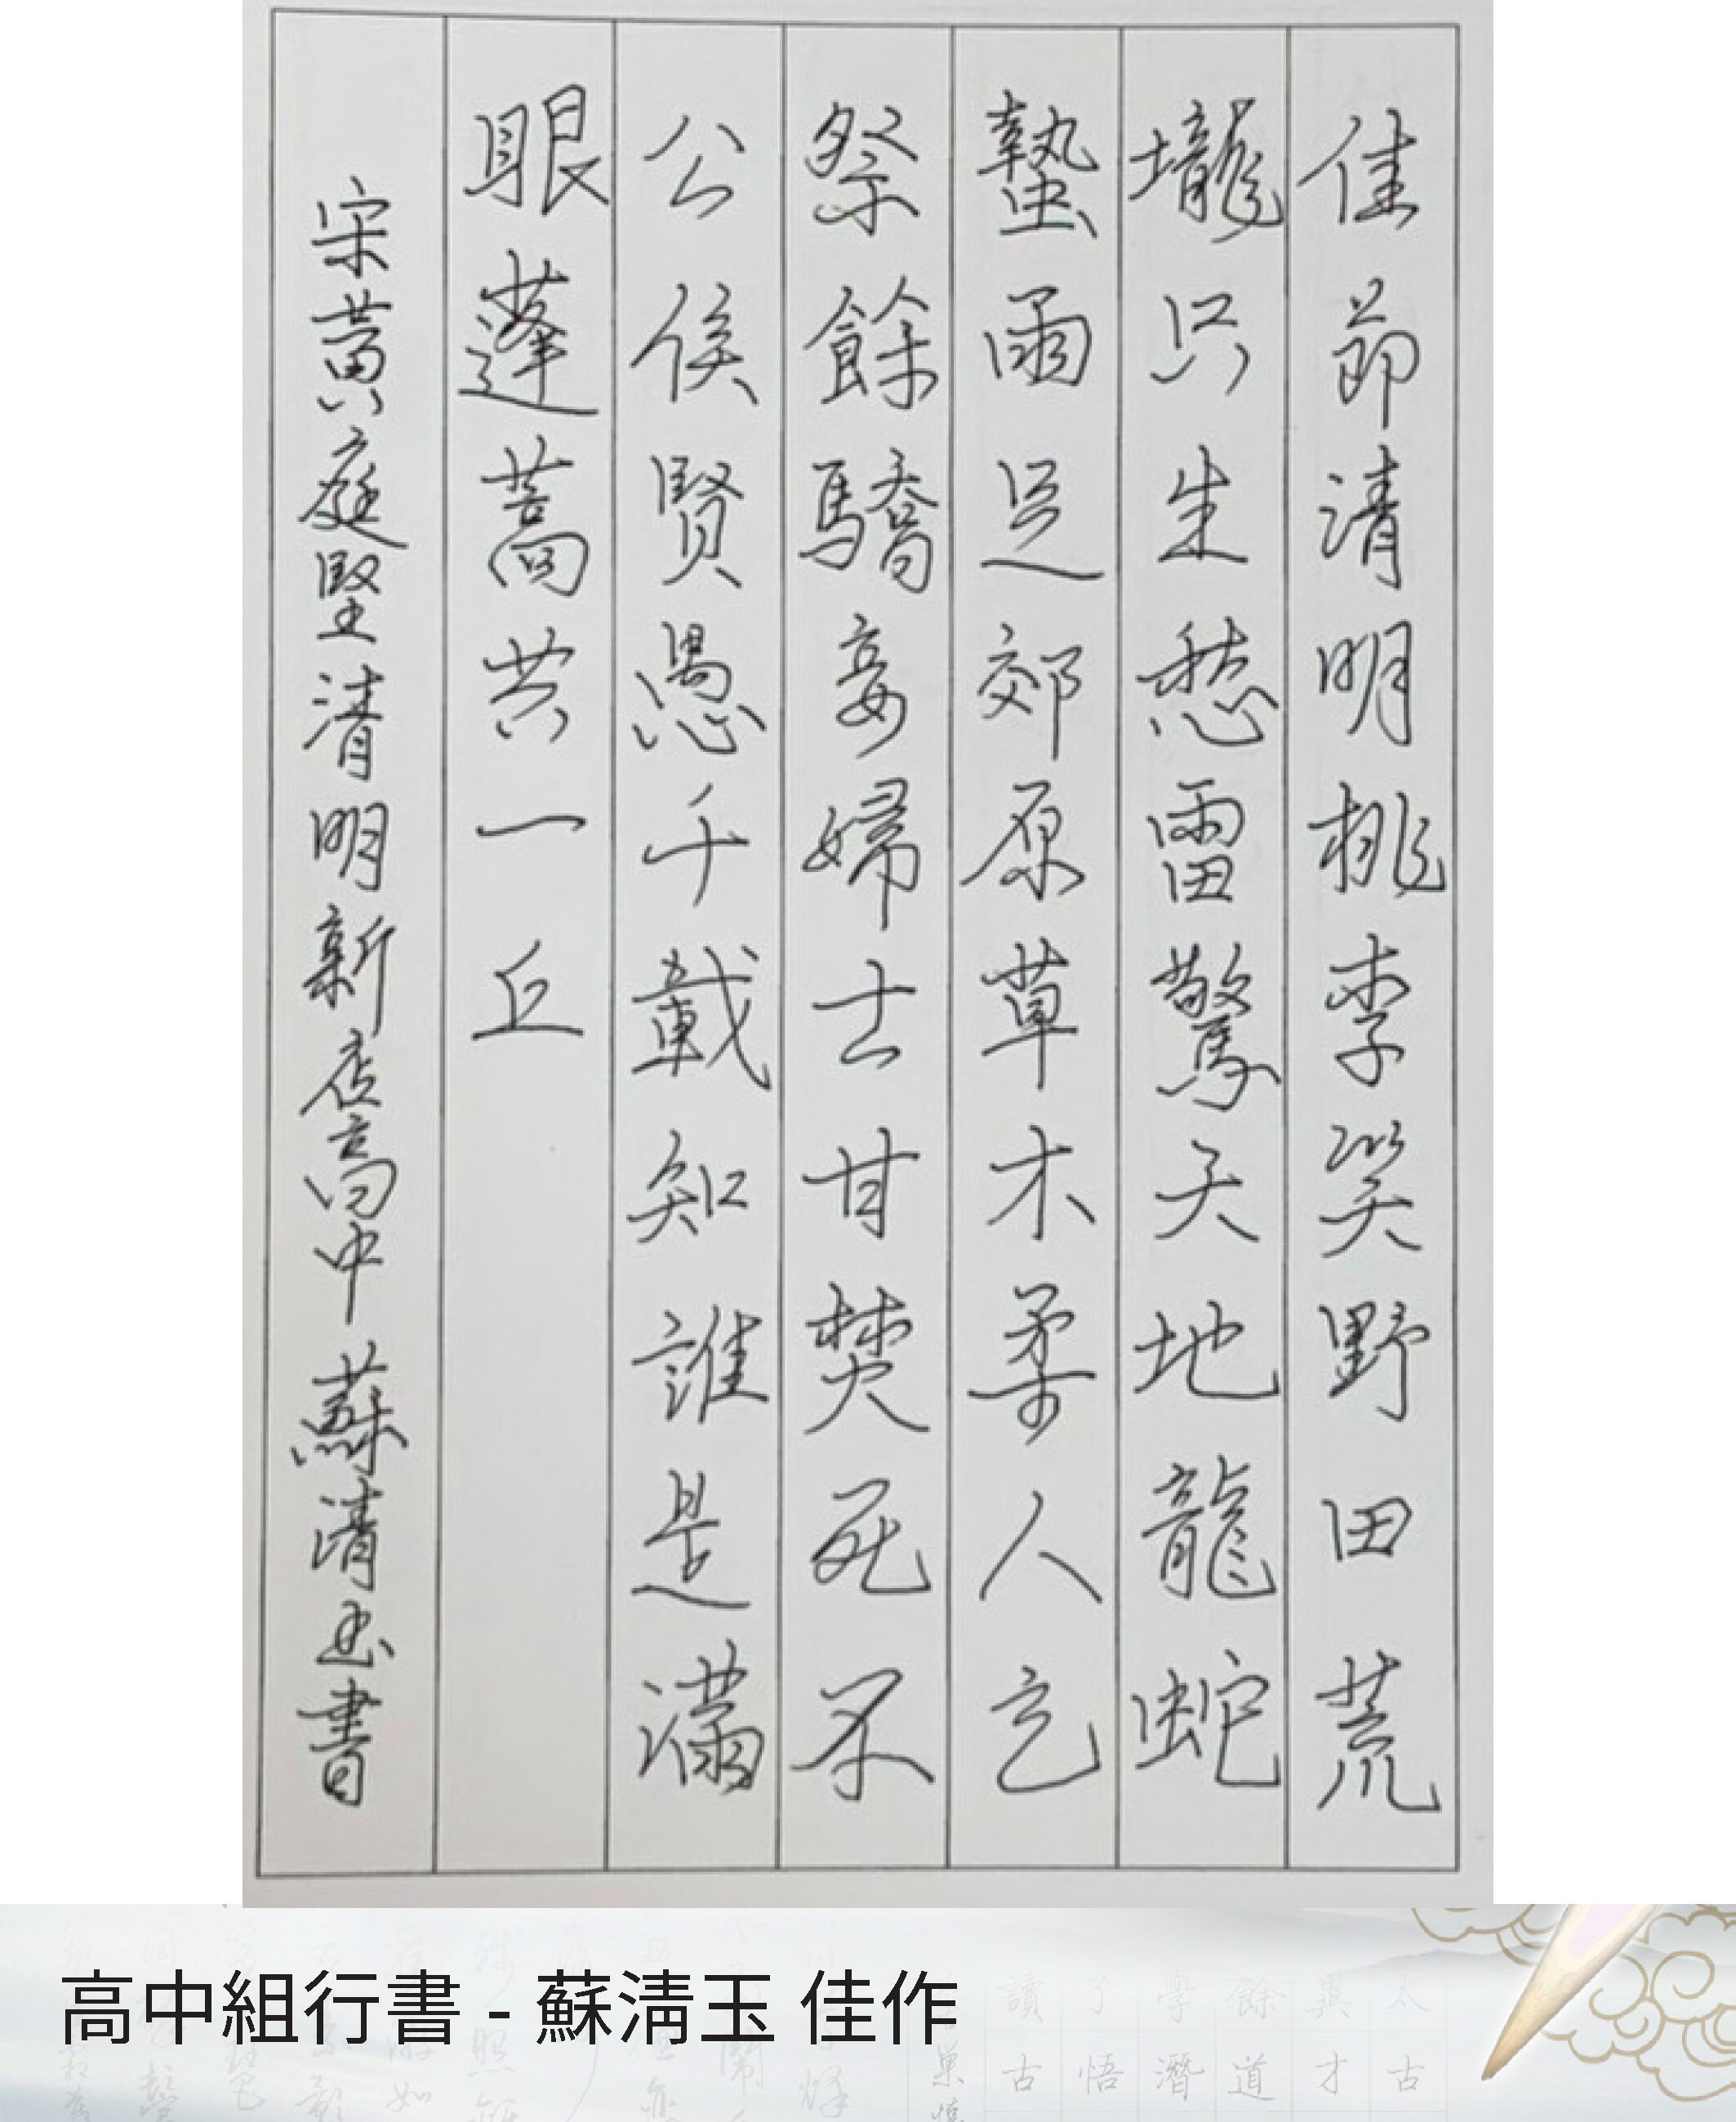 佳節清明桃李笑野田荒
壠只生愁雷驚天地龍蛇
蟄雨足郊原草木柔人乞
祭餘驕妾婦士甘焚死不
公侯賢愚千載知誰是滿
眼蓬蒿共一丘
宋黃庭堅清明新店高中蘇清玉書
高中組行書 - 蘇淯玉 佳作